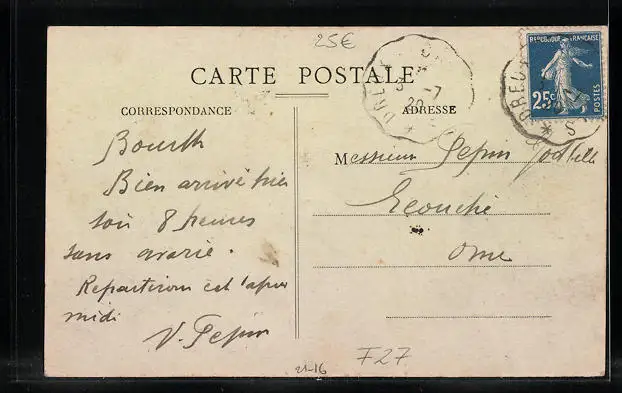 25€
CARTE POSTALE
CORRESPONDANCE
ADRESSE
REPUBLIQUE FRANÇAISE
25c
POSTES
DREUX
-7
20
Bourth
Bien arrivé hier
soir 8 heures
sans avarie.
Repartirons cet l'après
midi
V. Pepin
Messieurs Pepin
Ecouché
Orne
21-16
F27